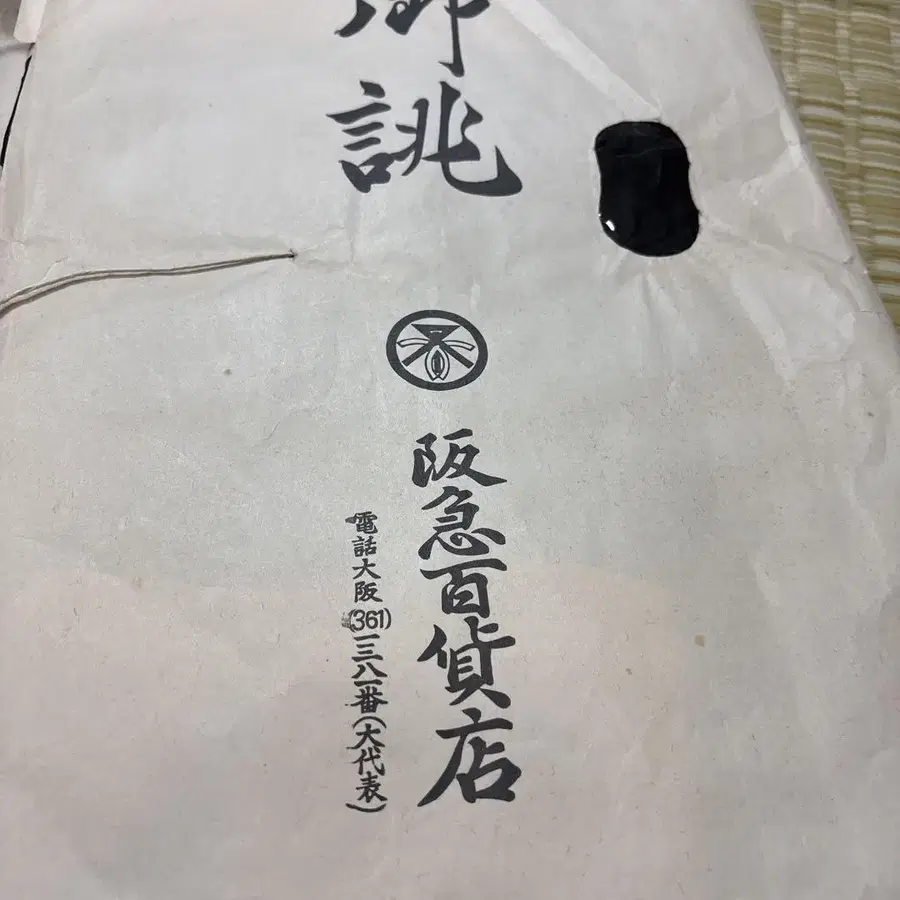 御誂
阪急百貨店
電話大阪(361)一三八一番(大代表)